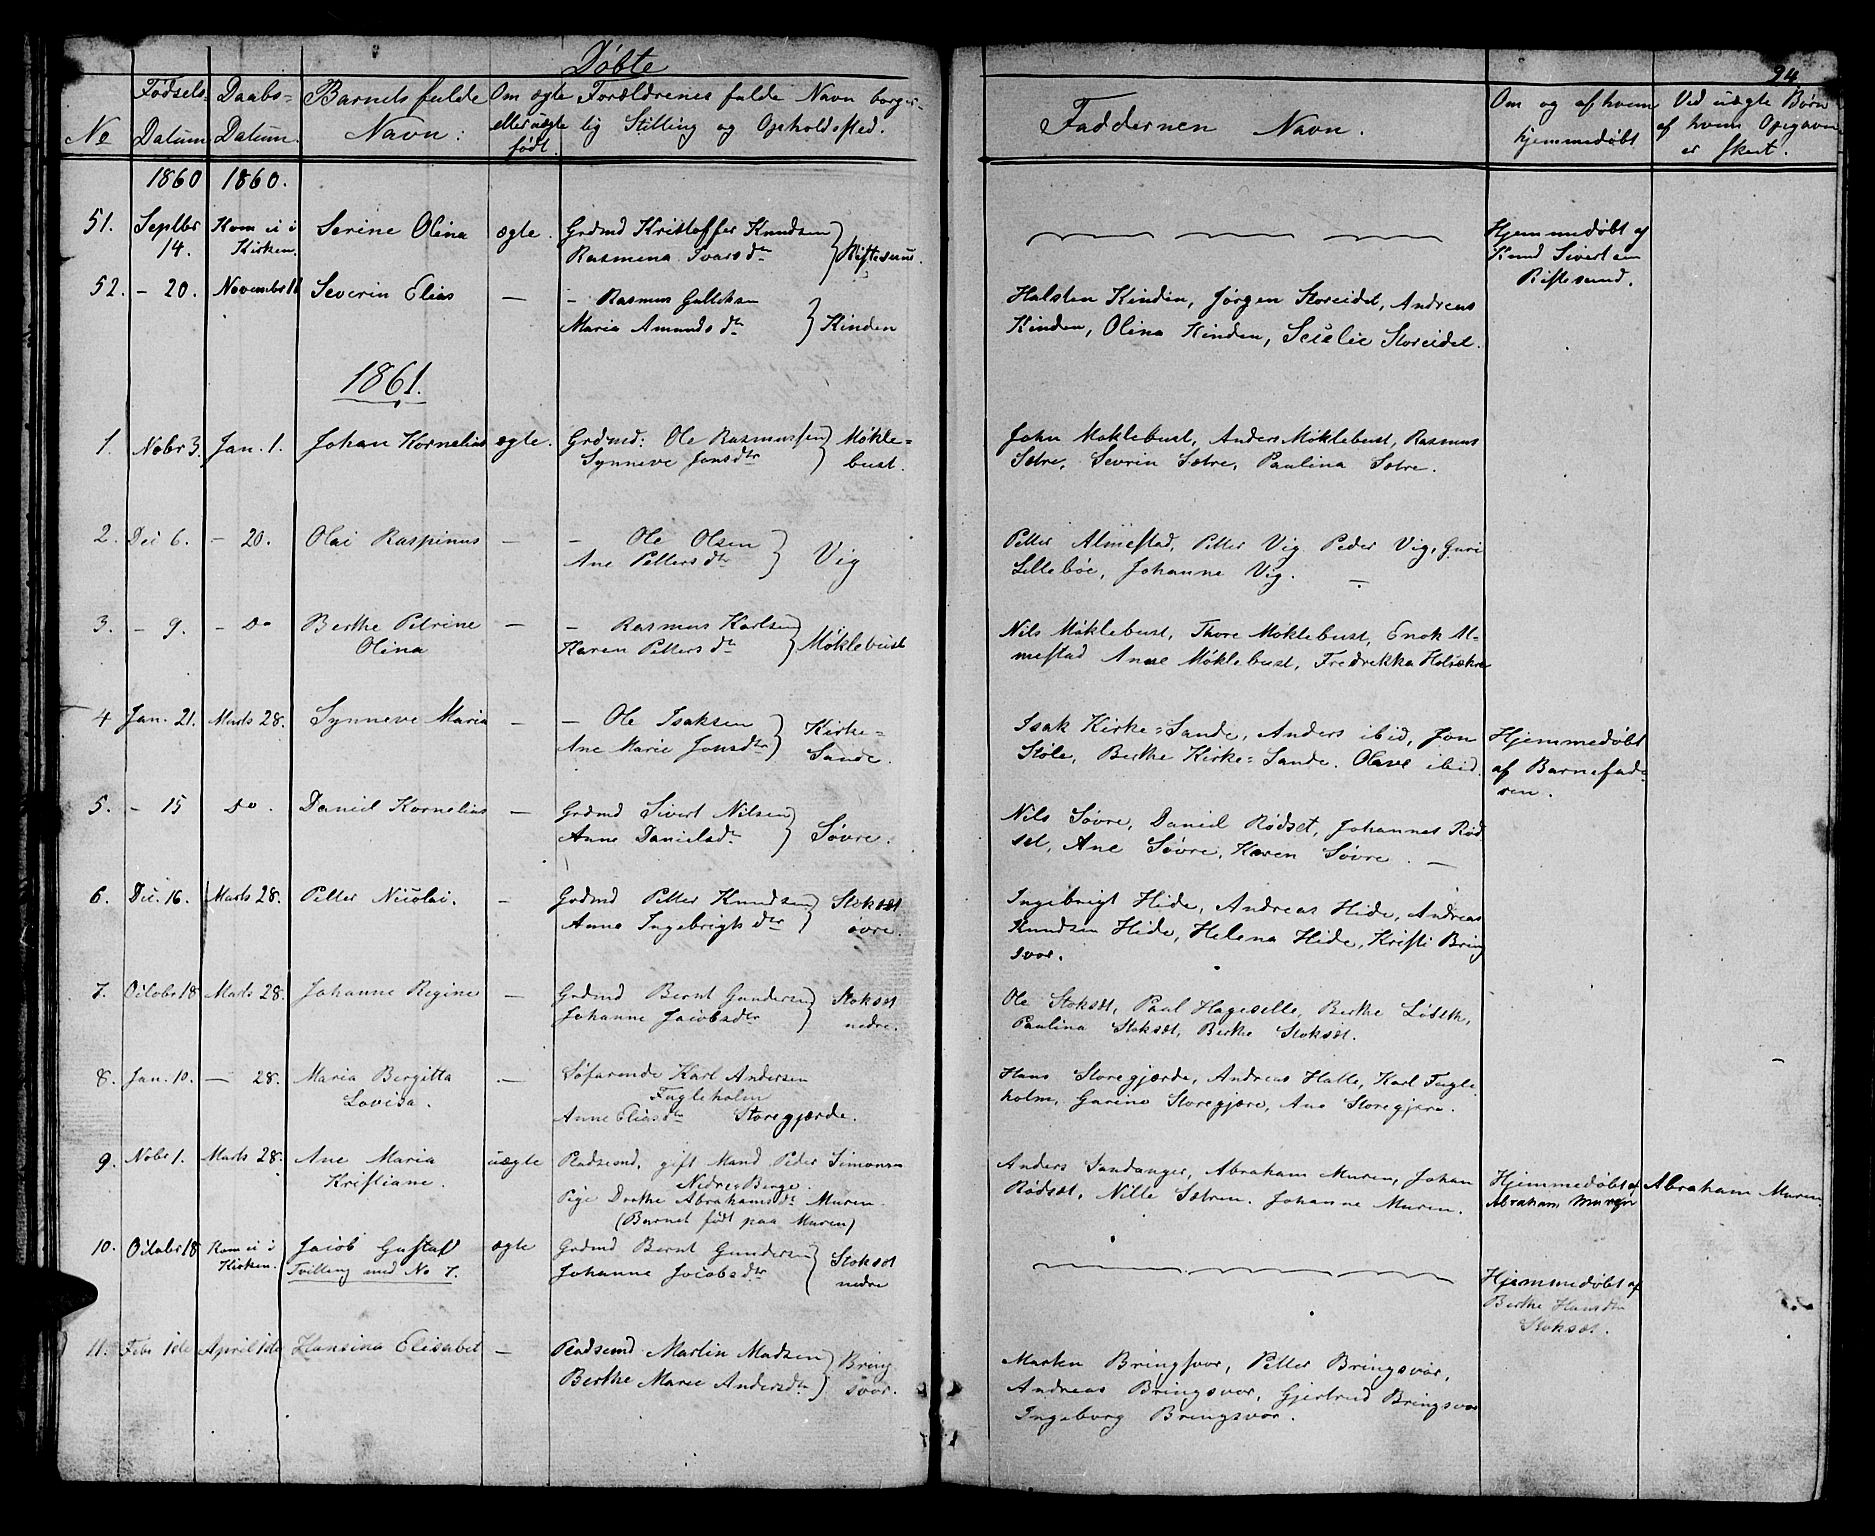 Døbte
24
No
Fødsels-
Datum
Daabs-
Datum.
Barnets fulde
Navn:
Om ægte
eller uægte
født.
Forældrenes fulde Navn borger-
lig Stilling og Opholdssted.
Faddernen Navn.
Om og af hvem
hjemmedøbt
Ved uægte Børn
af hvem Opgaven
er skeet.
1860 1860.
51. Septbr 14. Kom ei i Kirken. Serine Olina ægte. Grdmd Kristoffer Knudsen
Rasmena Ivarsdtr } Riftesund.
Hjemmedøbt af
Knud Sivertsen
Riftesund.
52. - 20. November 11 Severin Elias — - Rasmus Gullaksen
Maria Amundsdtr } Kinden
Halsten Kinden, Jørgen Storeidet, Andreas
Kinden, Olina Kinden, Scielie Storeidet.
1861.
1. Nobr 3. Jan. 1. Johan Kornelius ægte. Grdmd: Ole Rasmussen } Møkle-
Synneve Jonsdtr bust.
John Møklebust, Anders Møklebust, Rasmus
Sætre, Sevrin Sætre, Paulina Sætre.
2. Dec 6. - 20. Olai Raspinus — - Ole Olsen
Ane Pettersdtr } Vig
Petter Almestad, Petter Vig, Peder Vig, Guri
Lillebøe, Johanne Vig.
3. - 9. - Do Berthe Petrine — - Rasmus Karlsen
Olina Karen Pettersdtr } Møklebust
Nils Møklebust, Thore Møklebust, Enok Al-
mestad Anne Møklebust, Fredrekka Holsæter
4 Jan. 21. Marts 28. Synneve Maria — - Ole Isaksen } Kirke=
Ane Marie Jonsdtr Sande.
Isak Kirke=Sande, Anders ibid, Jon
Støle, Berthe Kirke=Sande. Olave ibid.
Hjemmedøbt
af Barnefade-
ren.
5. - 15 Do. Daniel Kornelius — Grdmd Sivert Nilsen
Anne Danielsdtr } Søvre.
Nils Søvre, Daniel Rødset, Johannes Rød
set, Ane Søvre, Karen Søvre.
6. Dec. 16. Marts 28. Petter Nicolai. - Grdmd Petter Knudsen } Stoksæt
Anne Ingebrigtsdtr øvre.
Ingebrigt Hide, Andreas Hide, Andreas
Knudsen Hide, Helena Hide, Kristi Bring
svor.
7. October 18 Marts 28. Johanne Regine — Grdmd Bernt Gundersen } Stoksæt
Johanne Jacobsdtr nedre.
Ole Stoksæt, Paul Hageselle, Berthe Løseth,
Paulina Stoksæt, Berthe Stoksæt.
8. Jan. 10. — 28. Maria Bergitta
Lovisa. — Søfarende Karl Andersen
Fugleholm
Anne Eliasdtr Storegjærde.
Hans Storegjærde, Andreas Halle, Karl Fugle
holm, Gurine Storegjære, Ane Storegjære.
9. Nobr 1. Marts 28. Ane Maria
Kristiane. uægte Pladsemd, gift Mand Peder Simonsen
Nedre Berge.
Pige Dorthe Abrahamsdtr Muren.
(Barnet født paa Muren)
Anders Sandanger, Abraham Muren, Johan
Rødsæt, Nille Sætren. Johanne Muren.
Hjemmedøbt af
Abraham Muren
Abraham Muren
10. October 18 Kom ei i Kirken. Jacob Gustav
Tvilling med No 7. ægte Grdmd Bernt Gundersen } Stoksæt
Johanne Jacobsdtr nedre
Hjemmedøbt af
Berthe Hansdtr
Stoksæt.
11. Febr 1de April 1de Hansina Elisabet — Pladsemd Martin Madsen } Bring
Berthe Marie Andersdtr svor.
Marten Bringsvor, Petter Bringsvor,
Andreas Bringsvor, Gjertrud Bringsvor
Ingeborg Bringsvor.